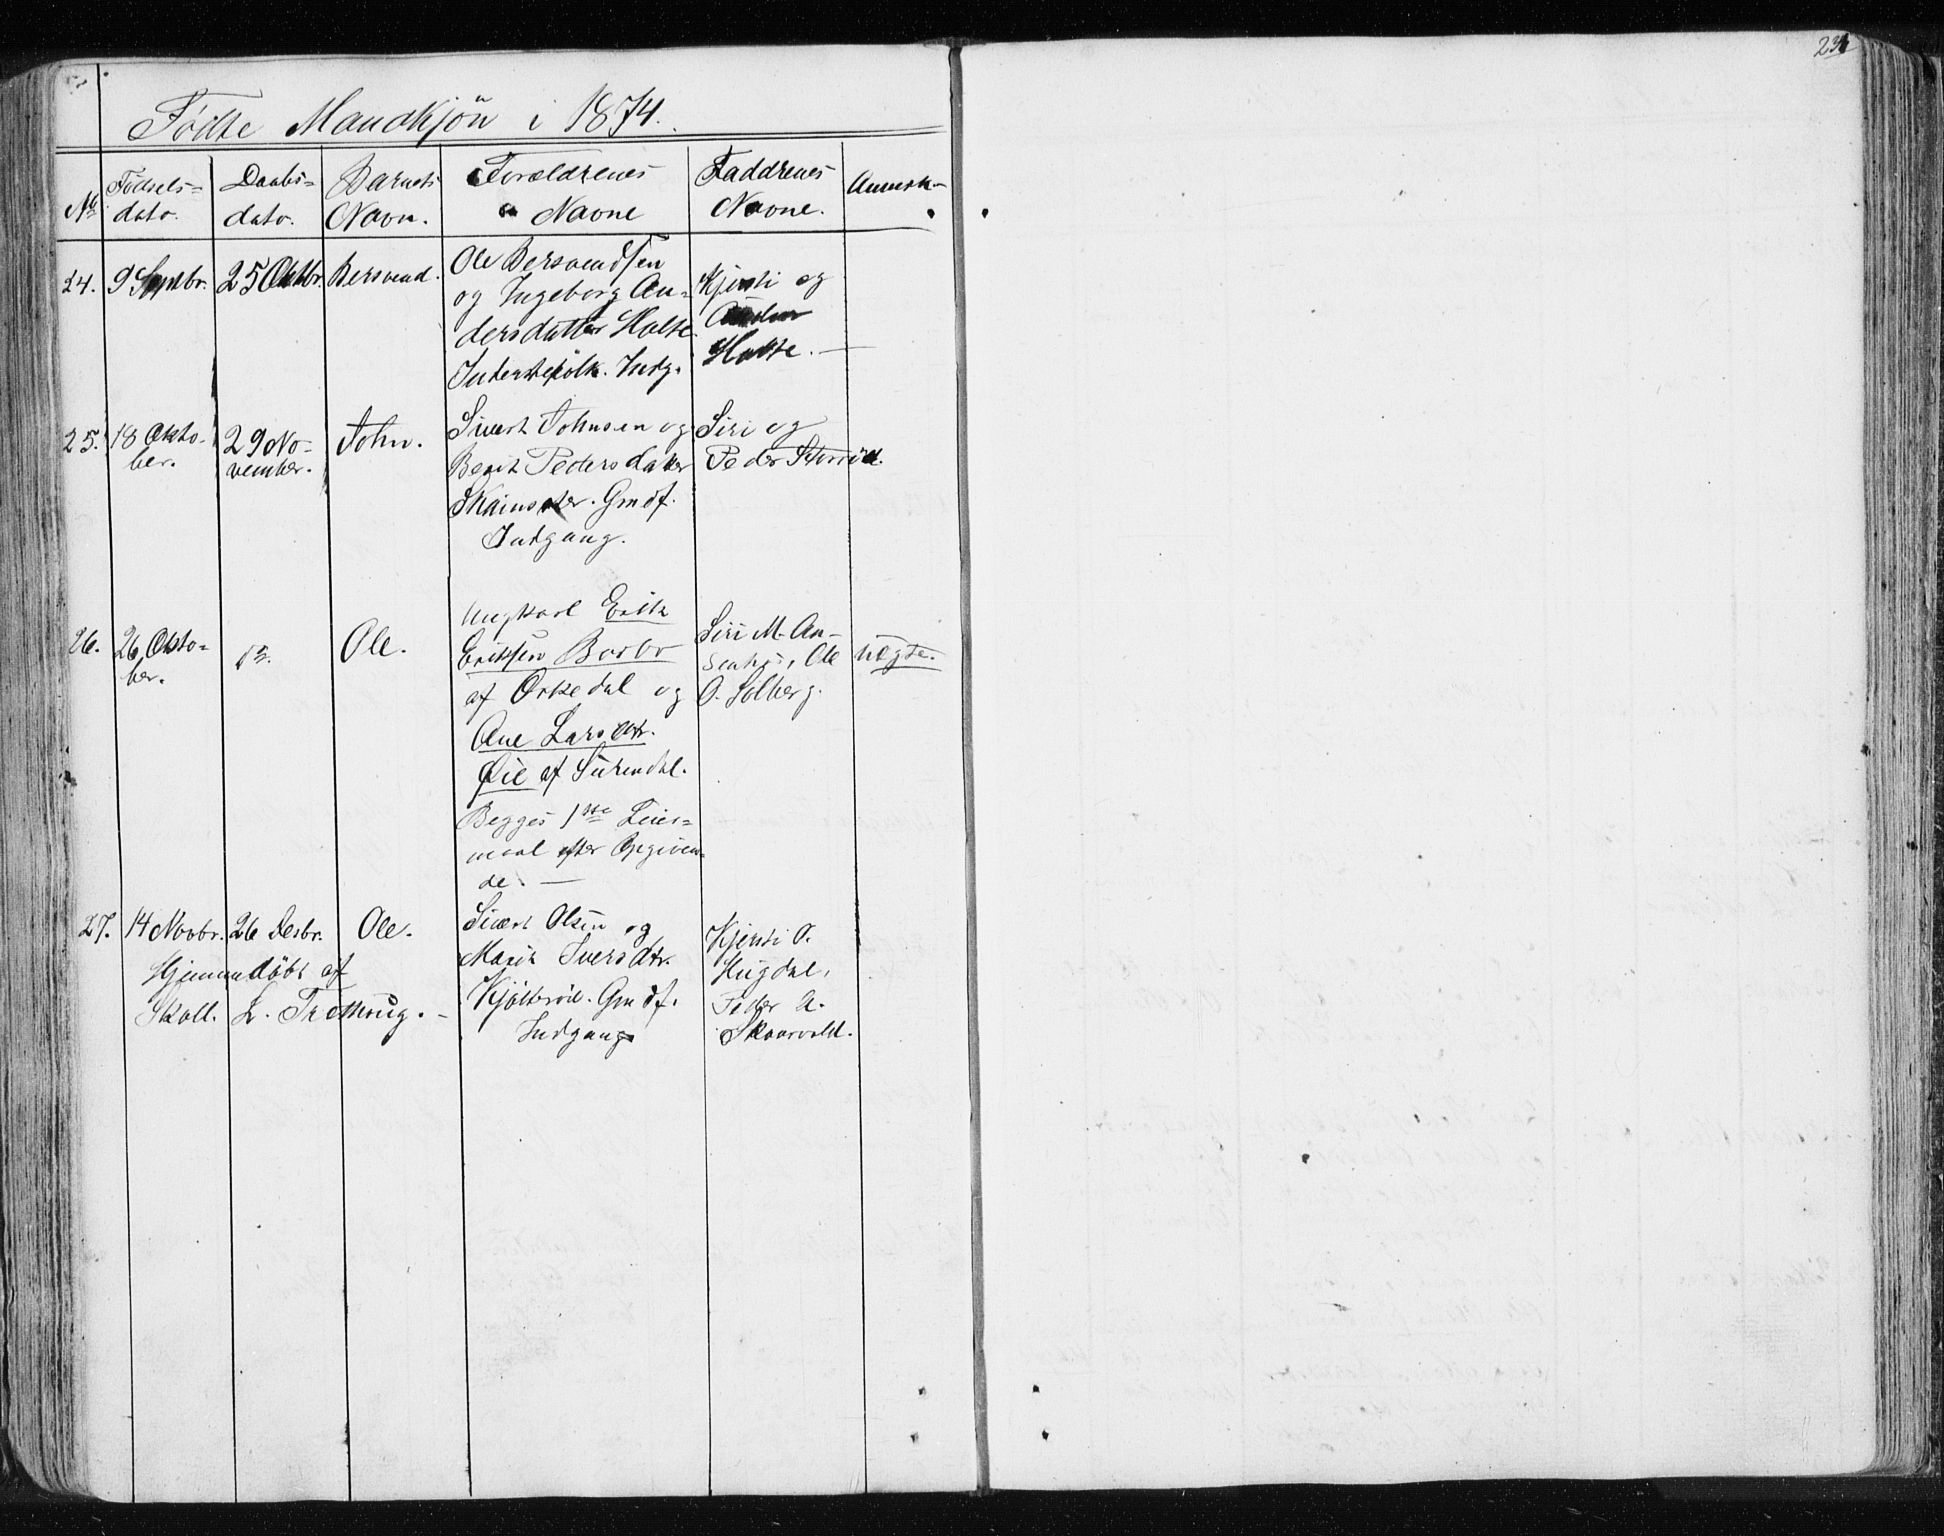 Fødte Mandkjøn i 1874.
No Fødsels= dato. Daabs= dato. Barnets Navn. Forældrenes Navne Faddrenes Navne. Anmerk.
24. 9 Septbr. 25 Oktbr. Bersvend. Ole Bersvendsen
og Ingeborg An=
dersdatter Holte
Inderstfolk. Indg.
Kjersti og
Holte.
25. 18 Okto-
ber.
29 No-
vember.
John.
Sivert Johnsen og
Berit Pedersdater
Gmdf.
Indgang.
Siri og
Peder Storrød.
26. 26 Okto-
ber.
Ole.
Ungkarl Erik
Eriksen Borbo
af Orkedal og
Ane Larsdtr.
Øie af Surendal.
Begges 1ste Leier=
maal efter Opgiven=
de. —
Siri M. An-
Ole
O. Solberg.
Uægte.
27. 14 Novbr. 26 Desbr. Ole.
Hjemmedøbt af
Skoll. L. Trettrug. -
Sivert Olsen og
Marit Iversdtr.
Kjølterød. Gmdf.
Indgang
Kjersti O.
Hugdal,
Peder A.
Skaarvold.